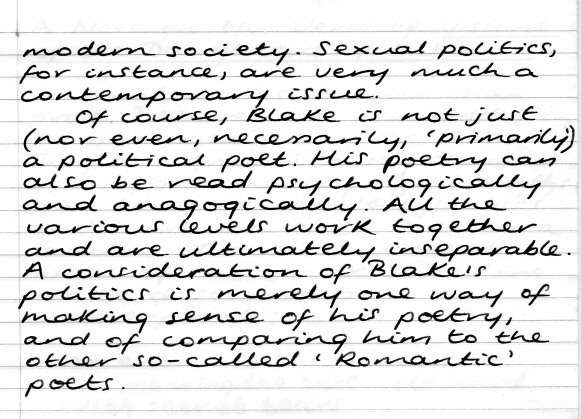 modern society. Sexual politics,
for instance, are very much a
contemporary issue.
Of course, Blake is not just
(nor even, necessarily, 'primarily)
a political poet. His poetry can
also be read psychologically
and anagogically. All the
various levels work together
and are ultimately inseparable.
A consideration of Blake's
politics is merely one way of
making sense of his poetry,
and of comparing him to the
other so-called 'Romantic'
poets.